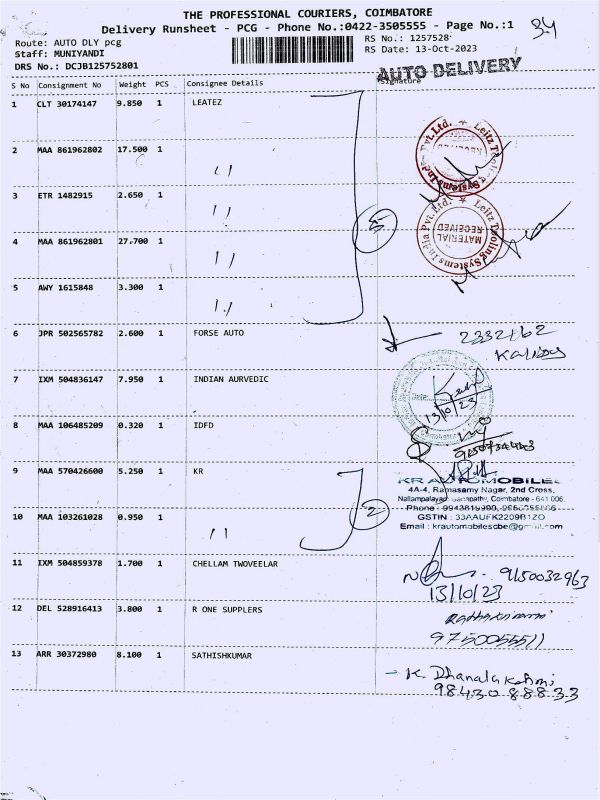 THE PROFESSIONAL COURIERS, COIMBATORE
Delivery Runsheet - PCG - Phone No.:0422-3505555 - Page No.:1
34
Route: AUTO DLY pcg
RS No.: 1257528
Staff: MUNIYANDI
RS Date: 13-Oct-2023
DRS No.: DCJB125752801
AUTO DELIVERY
S No Consignment No Weight PCS Consignee Details Signature
1 CLT 30174147 9.850 1 LEATEZ
2 MAA 861962802 17.500 1 ''
3 ETR 1482915 2.650 1 ''
4 MAA 861962801 27.700 1 ''
5 AWY 1615848 3.300 1 ''
5
Leitz Tooling Systems India Pvt. Ltd.
RECEIVED
Leitz Tooling Systems India Pvt. Ltd.
MATERIAL RECEIVED
6 JPR 502565782 2.600 1 FORSE AUTO
7 IXM 504836147 7.950 1 INDIAN AURVEDIC
13/10/23
8 MAA 106485209 0.320 1 IDFD
9 MAA 570426600 5.250 1 KR
KR AUTOMOBILES
4A-4, Ramasamy Nagar, 2nd Cross,
Coimbatore - 641 006.
GSTIN : 33AAUFK2209B1ZO
Email : krautomobilescbe@gmail.com
10 MAA 103261028 0.950 1 ''
2
11 IXM 504859378 1.700 1 CHELLAM TWOVEELAR
9150032963
13/10/23
12 DEL 528916413 3.800 1 R ONE SUPPLERS
9750055511
13 ARR 30372980 8.100 1 SATHISHKUMAR
- K. Dhanalakshmi
98430 88833